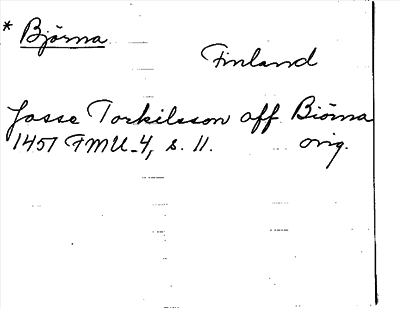 * Björna
Finland
Josse Torkilsson off Biörna
1451 FMU-4, s. 11. orig.